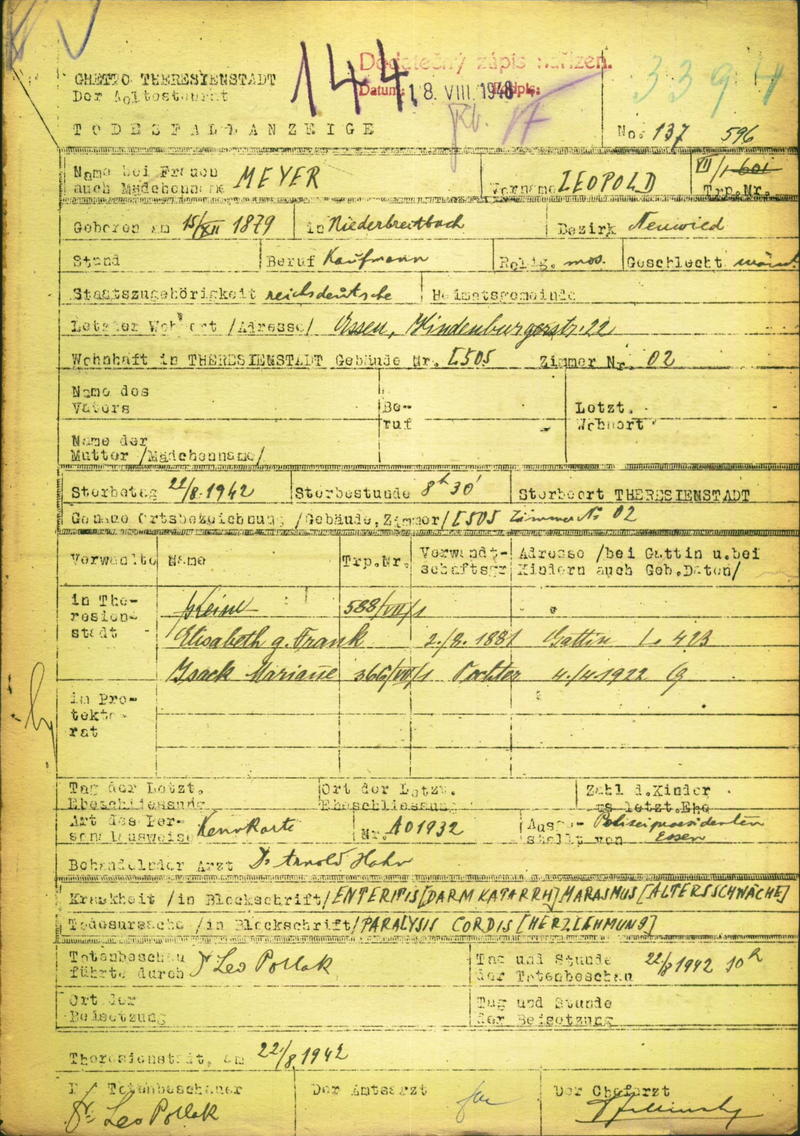 144
Dodatečný zápis nařízen.
Datum: 18. VIII. 1948 Podpis:
3394
GHETTO THERESIENSTADT
Der Aeltestenrat
TODESFALLANZEIGE
No. 137 596
Name bei Frauen auch Mädchenname MEYER Vorname LEOPOLD VII/1-601 Trp.Nr.
Geboren am 15/XII 1879 in Niederbreitbach Bezirk Neuwied
Stand Beruf Kaufmann Relig. mos. Geschlecht männl.
Staatszugehörigkeit reichsdeutsche Heimatsgemeinde
Letzter Wohnort /Adresse/ Essen, Hindenburgerstr. 22
Wohnhaft in THERESIENSTADT Gebäude Nr. L505 Zimmer Nr. 02
Name des Vaters Beruf Letzt. Wohnort
Name der Mutter /Mädchenname/
Sterbetag 22/8.1942 Sterbestunde 8h30' Sterbeort THERESIENSTADT
Genaue Ortsbezeichnung /Gebäude, Zimmer/ L505 Zimmer No 02
Verwandte Name Trp.Nr. Verwandt-schaftsgr Adresse /bei Gattin u.bei Kindern auch Geb.Daten/
in The-resien-stadt
588/VII/1
Elisabeth g. Frank 2./8. 1881 Gattin L. 423
Isack Mariane 366/VII/1 Tochter 4./4 1922
in Pro-tekto-rat
Tag der Letzt. Eheschliessung Ort der Letzt. Eheschliessung Zahl d.Kinder us letzt.Ehe
Art des Per-sonalausweise Kennkarte Nr. A01932 Ausge-stellt von Polizeipräsidenten Essen
Behandelnder Arzt Dr Arnold Hahn
Krankheit /in Blockschrift/ ENTERITIS [DARMKATARRH] MARASMUS [ALTERSSCHWÄCHE]
Todesursache /in Blockschrift/ PARALYSIS CORDIS [HERZLÄHMUNG]
Totenbeschau führte durch Dr Leo Pollak Tag und Stunde der Totenbeschau 22/8 1942 10h
Ort der Beisetzung Tag und Stunde der Beisetzung
Theresienstadt, am 22/8 1942
Totenbeschauer Der Amtsarzt Der Chefarzt
Dr. Leo Pollak